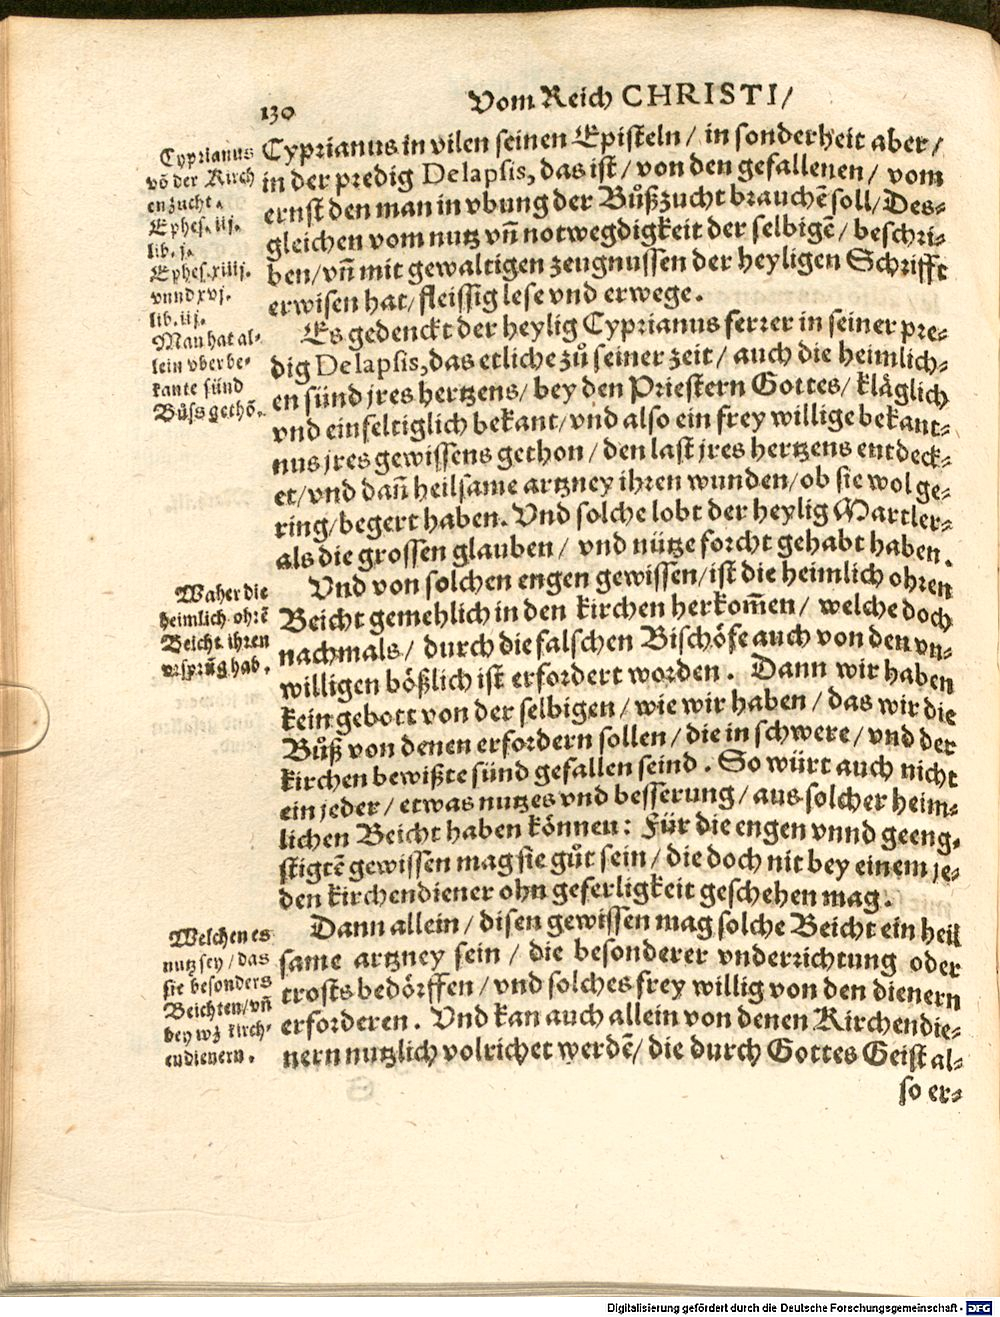 130
Vom Reich CHRISTI/
Cyprianus
võ der Kirch
en zucht.
Ephes. iij.
lib. j.
Ephes. xiiij.
vnnd xvj.
lib. iij.
Man hat al⸗
lein vber be⸗
kante sünd
Buͦſs gethõ.
Cyprianus in vilen seinen Episteln/ in sonderheit aber/
in der predig Delapsis, das ist/ von den gefallenen/ vom
ernst den man in vbung der Buͦßzucht brauchẽ soll/ Des⸗
gleichen vom nutz vñ notwegdigkeit der selbigẽ/ beschri⸗
ben/ vñ mit gewaltigen zeugnussen der heyligen Schrifft
erwisen hat/ fleissig lese vnd erwege.
Es gedenckt der heylig Cyprianus ferrer in seiner pre⸗
dig Delapsis, das etliche zuͦ seiner zeit/ auch die heimlich⸗
en sünd jres hertzens/ bey den Priestern Gottes/ kläglich
vnd einfeltiglich bekant/ vnd also ein frey willige bekant⸗
nus jres gewissens gethon/ den last jres hertzens entdeck⸗
et/ vnd dañ heilsame artzney ihren wunden/ ob sie wol ge⸗
ring/ begert haben. Vnd solche lobt der heylig Martler⸗
als die grossen glauben/ vnd nütze forcht gehabt haben.
Waher die
heimlich ohrẽ
Beicht ihren
vrsprũg hab.
Vnd von solchen engen gewissen/ ist die heimlich ohren
Beicht gemehlich in den kirchen herkom̃en/ welche doch
nachmals/ durch die falschen Bischöfe auch von den vn⸗
willigen bößlich ist erfordert worden. Dann wir haben
kein gebott von der selbigen/ wie wir haben/ das wir die
Buͦß von denen erfordern sollen/ die in schwere/ vnd der
kirchen bewißte sünd gefallen seind. So würt auch nicht
ein jeder/ etwas nutzes vnd besserung/ aus solcher heim⸗
lichen Beicht haben können: Für die engen vnnd geeng⸗
stigtẽ gewissen mag sie guͦt sein/ die doch nit bey einem je⸗
den kirchendiener ohn geferligkeit geschehen mag.
Welchen es
nutz sey/ das
sie besonders
Beichten/ vñ
bey wz kirch⸗
endienern.
Dann allein/ disen gewissen mag solche Beicht ein heil
same artzney sein/ die besonderer vnderrichtung oder
trosts bedörffen/ vnd solches frey willig von den dienern
erforderen. Vnd kan auch allein von denen Kirchendie⸗
nern nutzlich volrichet werdẽ/ die durch Gottes Geist al⸗
so er⸗
Digitalisierung gefördert durch die Deutsche Forschungsgemeinschaft - DFG